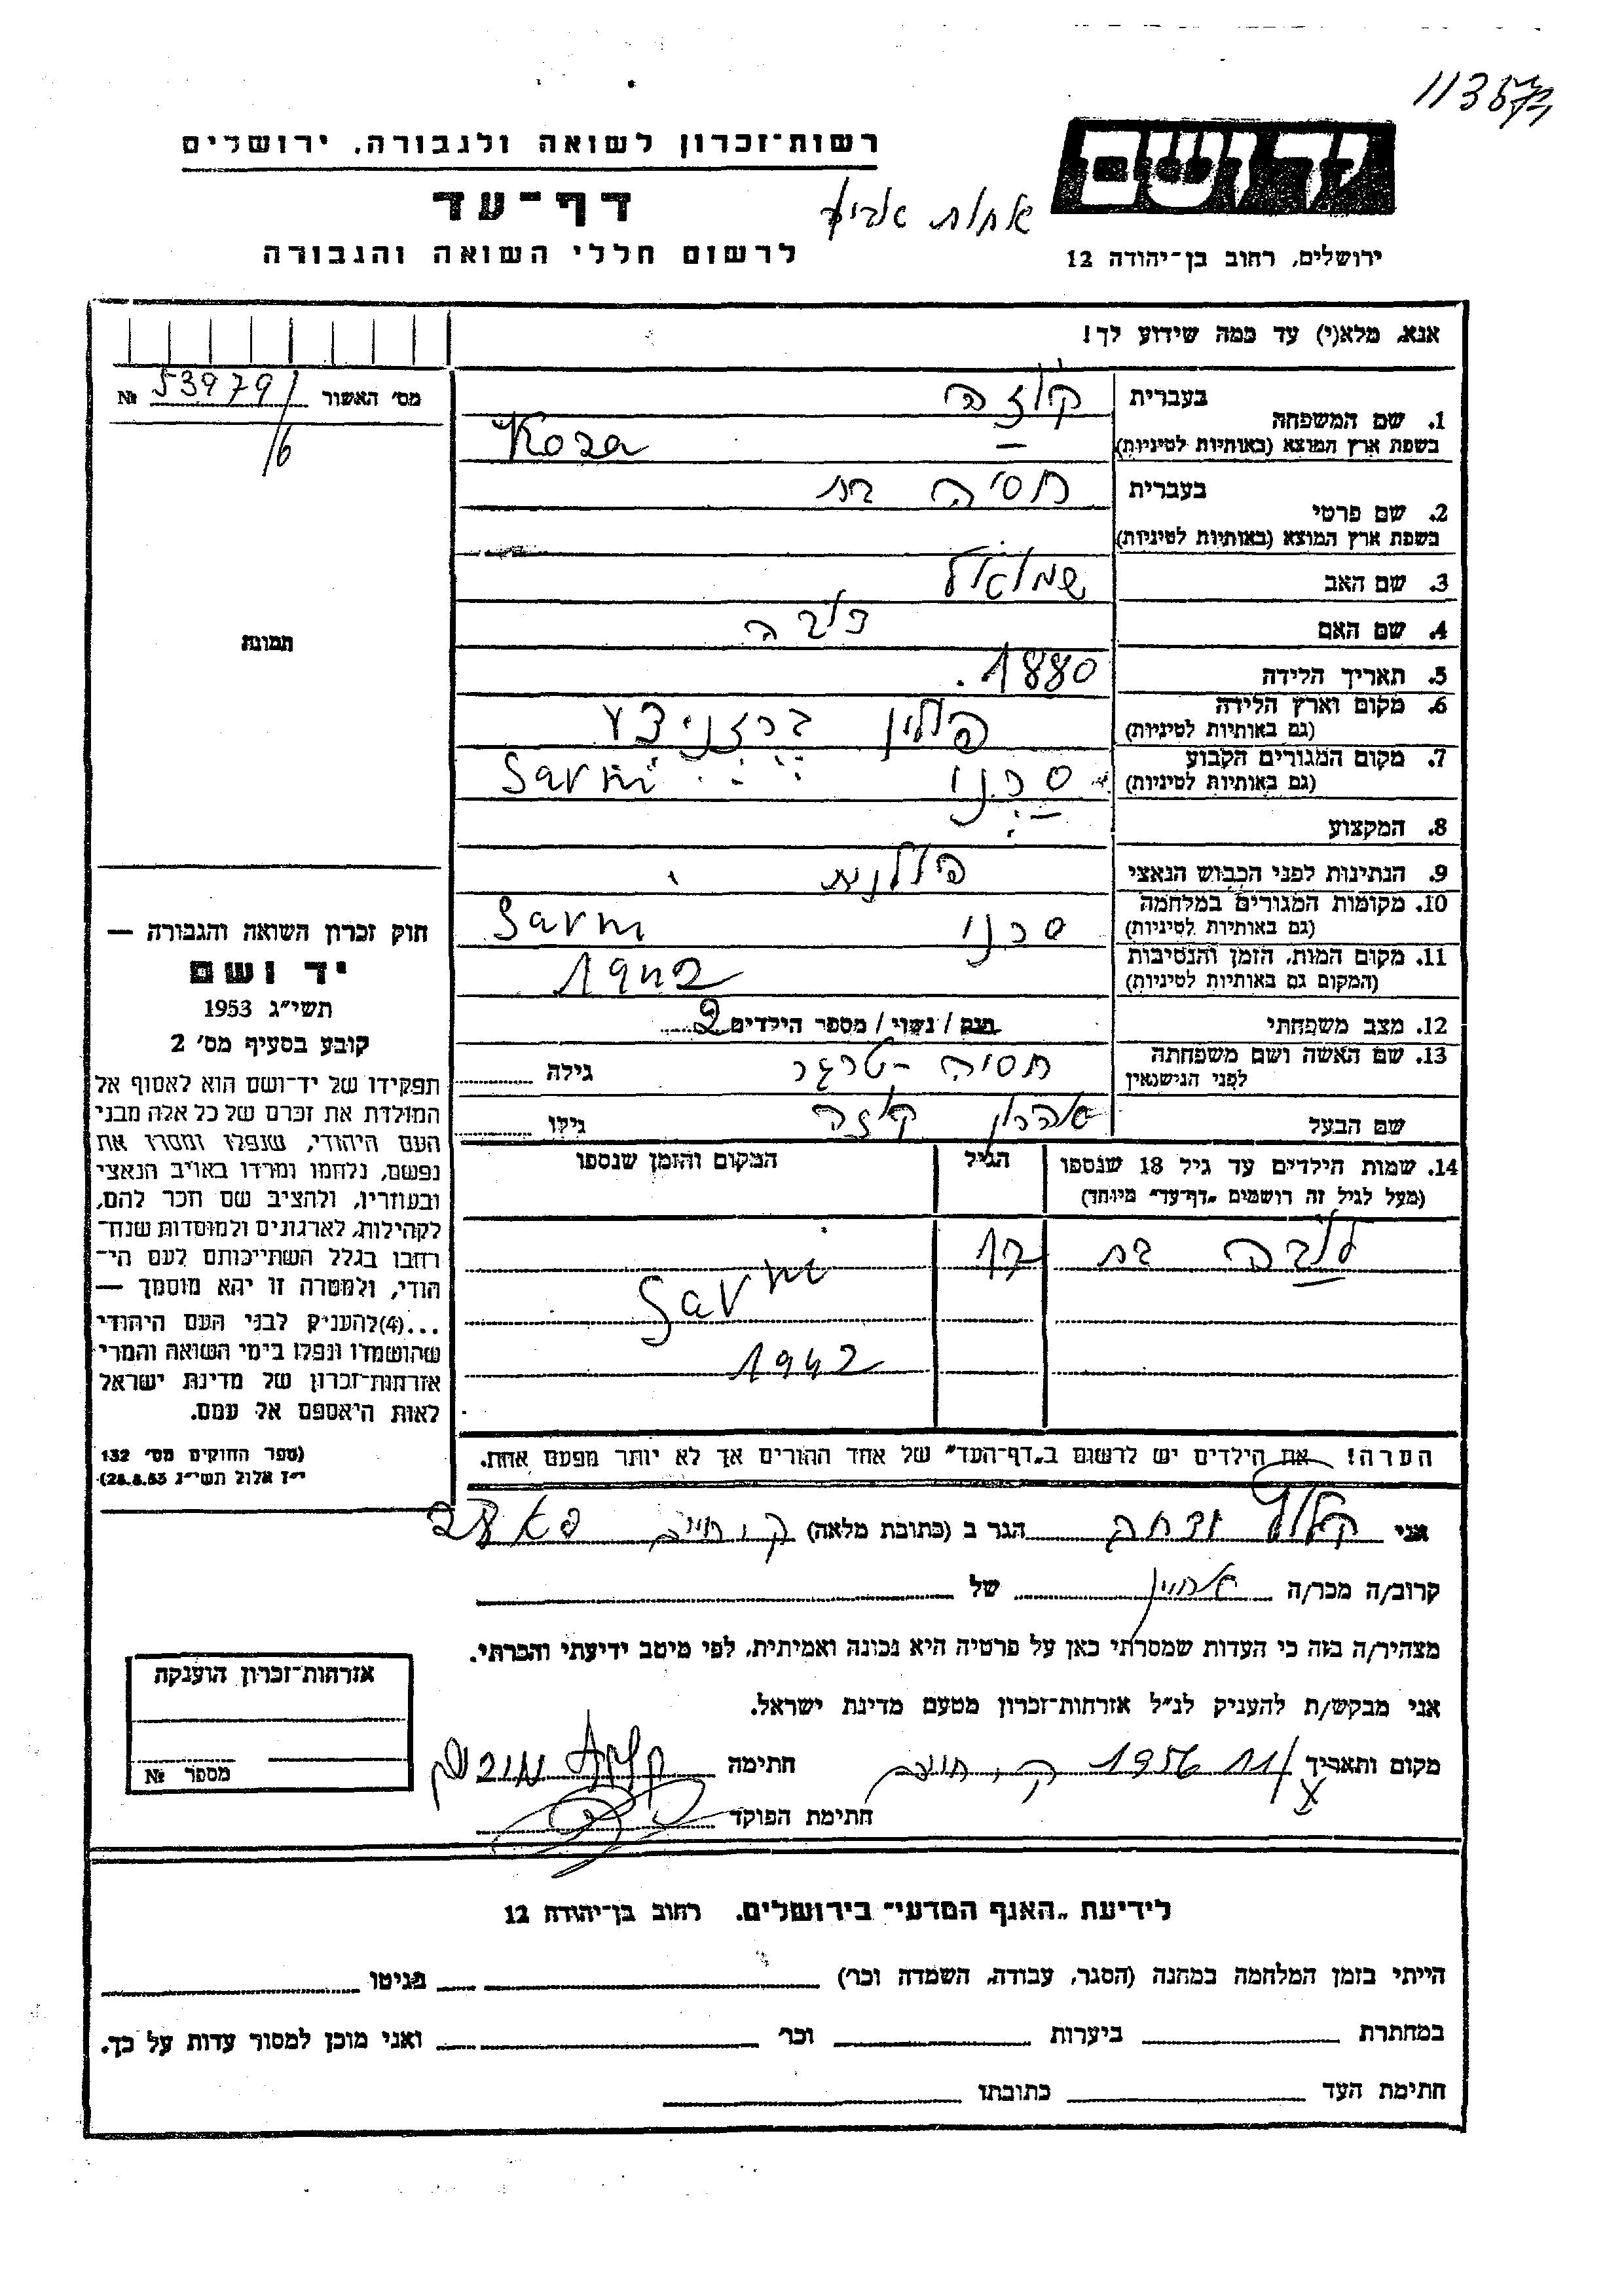 113573
יד ושם
רשות־זכרון לשואה ולגבורה, ירושלים
דף־עד
אחות אביו
לרשום חללי השואה והגבורה
ירושלים, רחוב בן־יהודה 12
אנא, מלא(י) עד כמה שידוע לך!
מס' האשור 53979/ №
/6
תמונה
1. שם המשפחה
בעברית קוזה
בשפת ארץ המוצא (באותיות לטיניות) Koza
2. שם פרטי
בעברית חסיה בת
בשפת ארץ המוצא (באותיות לטיניות)
3. שם האב שמואל
4. שם האם
5. תאריך הלידה 1880.
6. מקום וארץ הלידה פולין
(גם באותיות לטיניות)
7. מקום המגורים הקבוע סרני Sarni
(גם באותיות לטיניות)
8. המקצוע
9. הנתינות לפני הכבוש הנאצי פולנית
10. מקומות המגורים במלחמה סרני Sarni
(גם באותיות לטיניות)
11. מקום המות, הזמן והנסיבות 1942
(המקום גם באותיות לטיניות)
12. מצב משפחתי רווק / נשוי / מספר הילדים 2
13. שם האשה ושם משפחתה חסיה גילה
לפני הנישואין
שם הבעל אהרון קוזה גילו
14. שמות הילדים עד גיל 18 שנספו הגיל המקום והזמן שנספו
(מעל לגיל זה רושמים „דף־עד" מיוחד)
בת 17
Sarni
1942
הערה! את הילדים יש לרשום ב„דף־העד" של אחד ההורים אך לא יותר מפעם אחת.
חוק זכרון השואה והגבורה —
יד ושם
תשי"ג 1953
קובע בסעיף מס' 2
תפקידו של יד־ושם הוא לאסוף אל
המולדת את זכרם של כל אלה מבני
העם היהודי, שנפלו ומסרו את
נפשם, נלחמו ומרדו באויב הנאצי
ובעוזריו, ולהציב שם וזכר להם,
לקהילות, לארגונים ולמוסדות שנח־
רבו בגלל השתייכותם לעם הי־
הודי, ולמטרה זו יהא מוסמך —
...(4) להעניק לבני העם היהודי
שהושמדו ונפלו בימי השואה והמרי
אזרחות־זכרון של מדינת ישראל
לאות היאספם אל עמם.
(ספר החוקים מס' 132
י"ז אלול תשי"ג 28.8.53)
אני הגר ב (כתובת מלאה)
קרוב/ה מכר/ה אחיין של
מצהיר/ה בזה כי העדות שמסרתי כאן על פרטיה היא נכונה ואמיתית, לפי מיטב ידיעתי והכרתי.
אני מבקש/ת להעניק לנ"ל אזרחות־זכרון מטעם מדינת ישראל.
מקום ותאריך 11/X 1956 חתימה
חתימת הפוקד
אזרחות־זכרון הוענקה
מספר №
לידיעת „האגף המדעי" בירושלים, רחוב בן־יהודה 12
הייתי בזמן המלחמה במחנה (הסגר, עבודה, השמדה וכו') בגיטו
במחתרת ביערות וכו' ואני מוכן למסור עדות על כך.
חתימת העד כתובתו